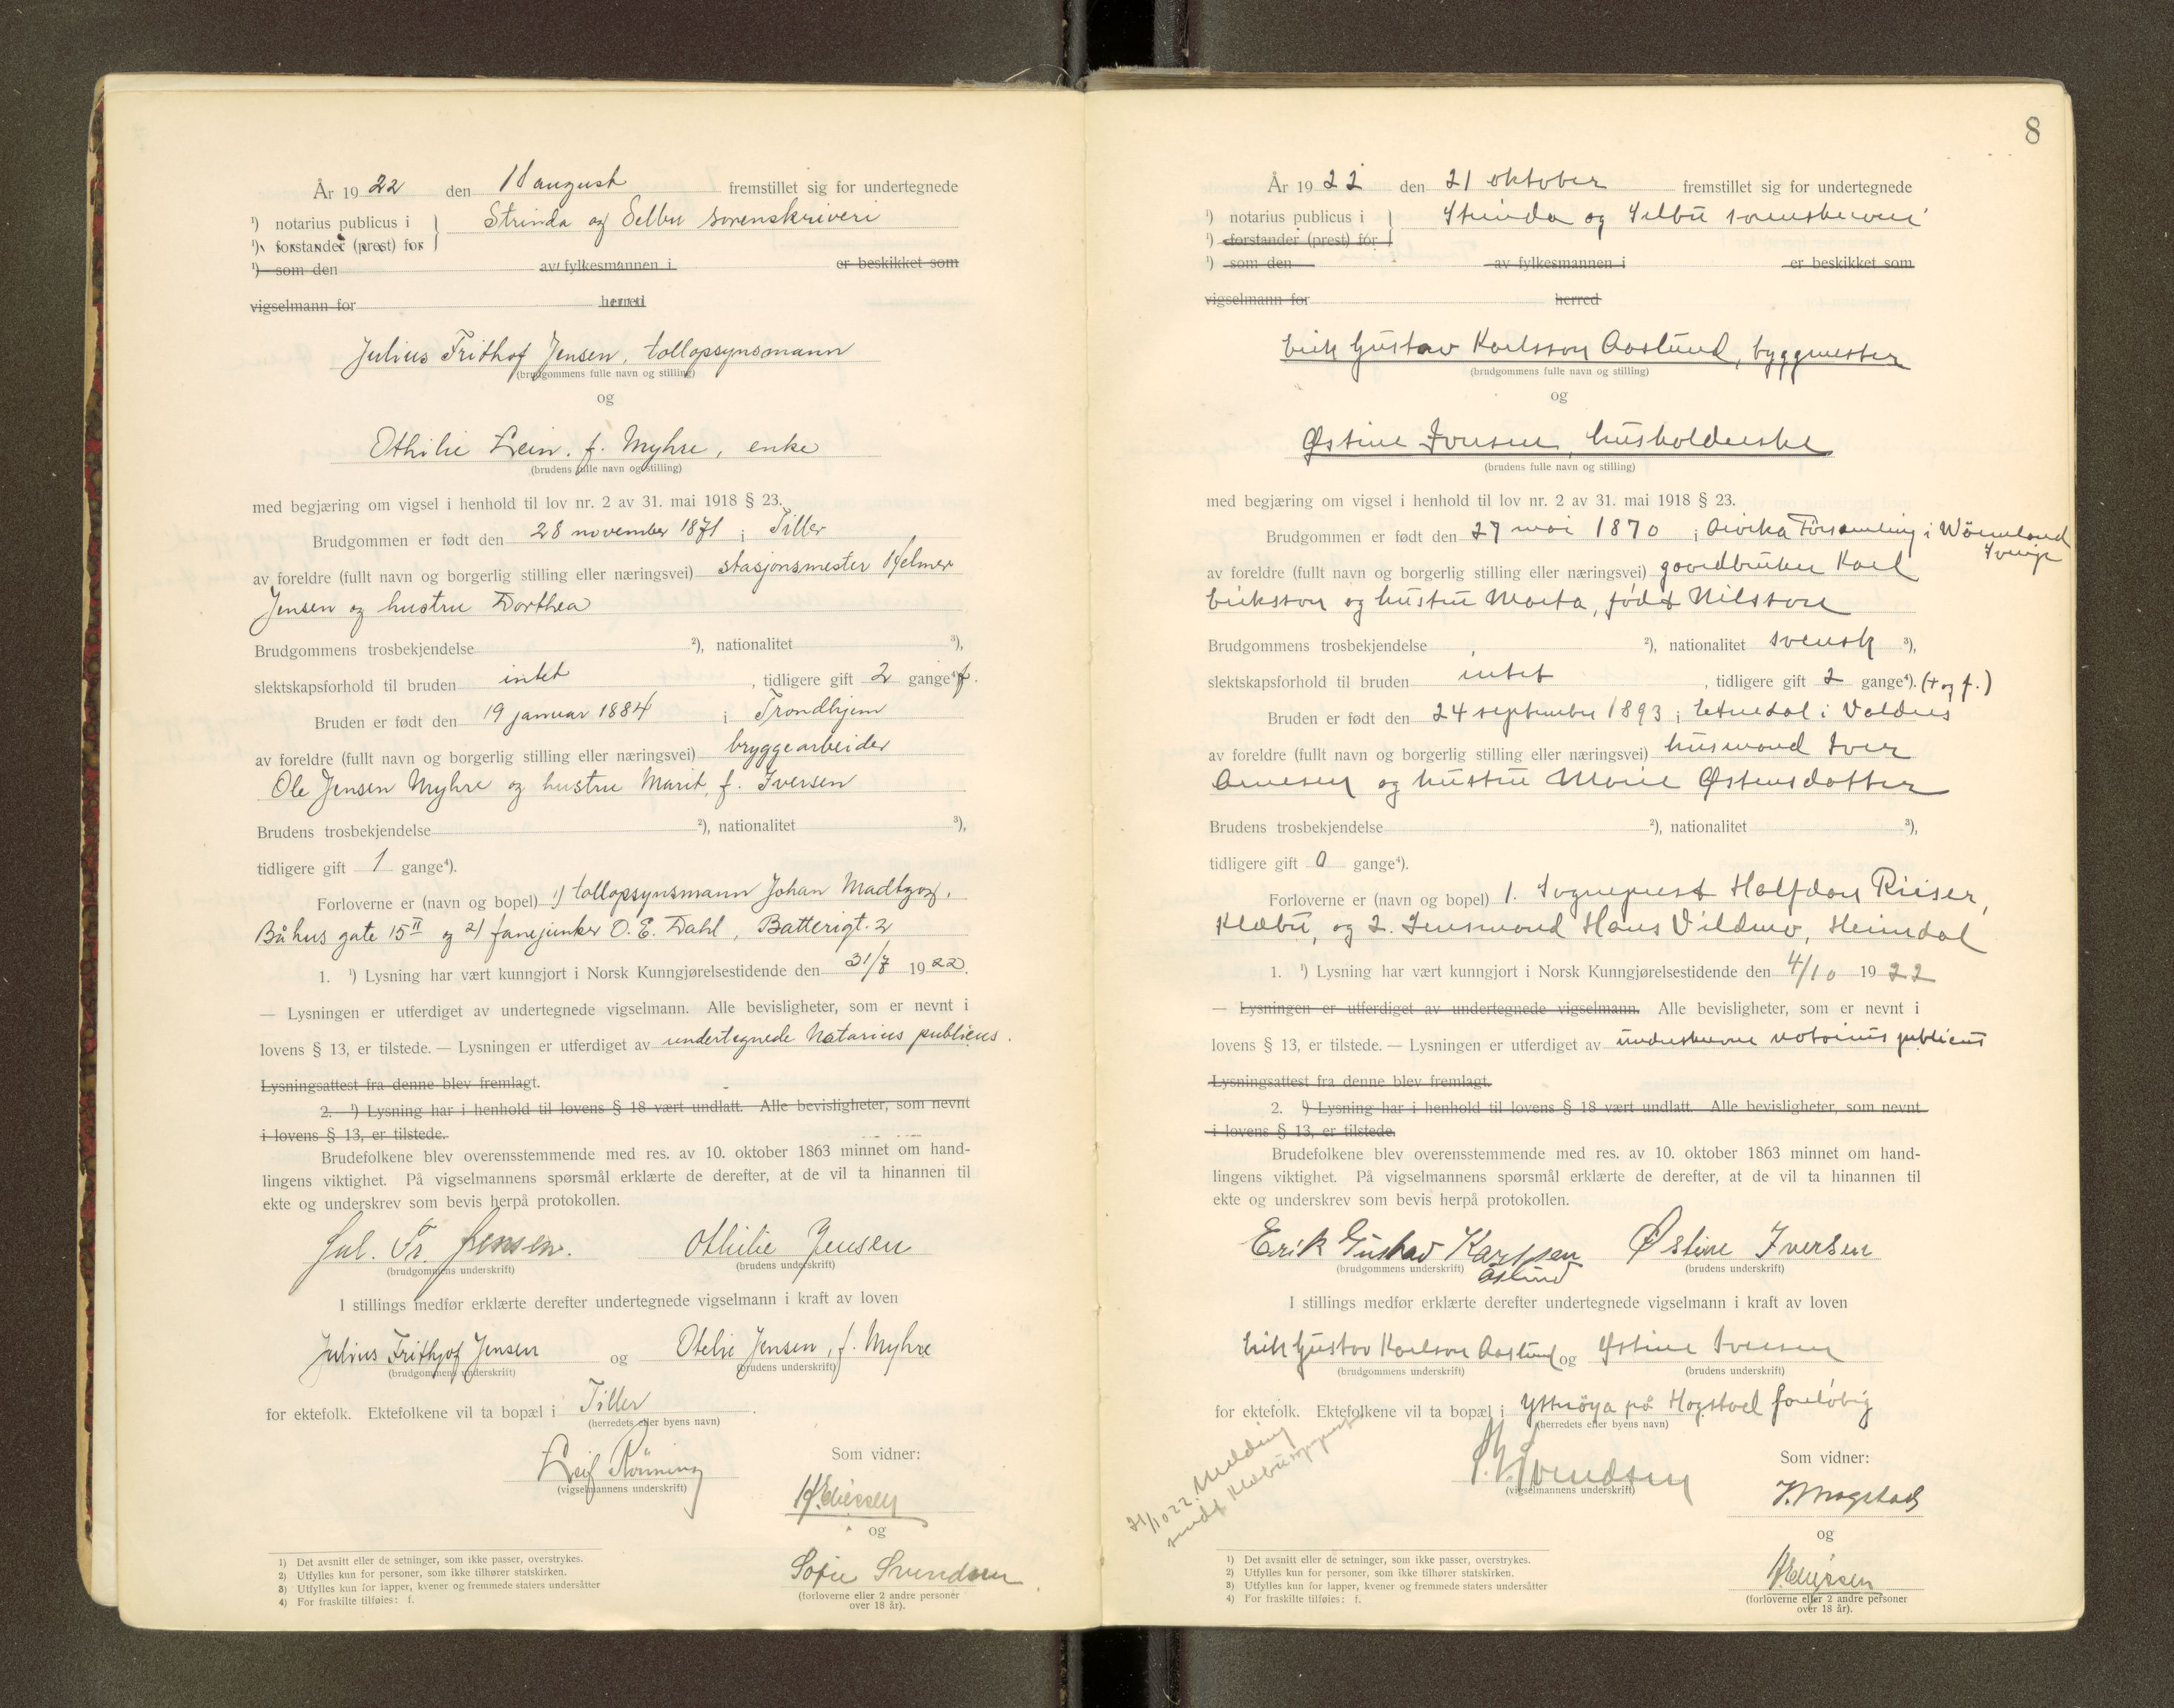 År 1922 den 18 august fremstillet sig for undertegnede
¹) notarius publicus i } Strinda og Selbu sorenskriveri
¹) forstander (prest) for
¹) som den av fylkesmannen i er beskikket som
vigselmann for herred
Julius Frithof Jensen, tollopsynsmann
(brudgommens fulle navn og stilling)
og
Othilie Lein. f. Myhre, enke
(brudens fulle navn og stilling)
med begjæring om vigsel i henhold til lov nr. 2 av 31. mai 1918 § 23.
Brudgommen er født den 28 november 1871 i Tiller
av foreldre (fullt navn og borgerlig stilling eller næringsvei) stasjonsmester Hjelmer
Jensen og hustru Dorthea
Brudgommens trosbekjendelse ²), nationalitet ³),
slektskapsforhold til bruden intet, tidligere gift 2 gange⁴) f.
Bruden er født den 19 januar 1884 i Trondhjem
av foreldre (fullt navn og borgerlig stilling eller næringsvei) bryggearbeider
Ole Jensen Myhre og hustru Marit, f. Iversen
Brudens trosbekjendelse ²), nationalitet ³),
tidligere gift 1 gange⁴).
Forloverne er (navn og bopel) 1) tollopsynsmann Johan
Båhus gate 15 II og 2) fanejunker O. E. Dahl, Batterigt. 2
1. ¹) Lysning har vært kunngjort i Norsk Kunngjørelsestidende den 31/7 1922.
— Lysningen er utferdiget av undertegnede vigselmann. Alle bevisligheter, som er nevnt i
lovens § 13, er tilstede. — Lysningen er utferdiget av undertegnede Notarius publicus.
Lysningsattest fra denne blev fremlagt.
2. ¹) Lysning har i henhold til lovens § 18 vært undlatt. Alle bevisligheter, som nevnt
i lovens § 13, er tilstede.
Brudefolkene blev overensstemmende med res. av 10. oktober 1863 minnet om hand-
lingens viktighet. På vigselmannens spørsmål erklærte de derefter, at de vil ta hinannen til
ekte og underskrev som bevis herpå protokollen.
Jul. Fr. Jensen. Othilie Jensen
(brudgommens underskrift) (brudens underskrift)
I stillings medfør erklærte derefter undertegnede vigselmann i kraft av loven
Julius Frithjof Jensen og Otelie Jensen, f. Myhre
(brudgommens underskrift) (brudens underskrift)
for ektefolk. Ektefolkene vil ta bopæl i Tiller.
(herredets eller byens navn)
Leif Rönning Som vidner:
(vigselmannens underskrift)
og
Sofie Svendsen
(forloverne eller 2 andre personer
over 18 år).
1) Det avsnitt eller de setninger, som ikke passer, overstrykes.
2) Utfylles kun for personer, som ikke tilhører statskirken.
3) Utfylles kun for lapper, kvener og fremmede staters undersåtter
4) For fraskilte tilføies: f.
8
År 1922 den 21 oktober fremstillet sig for undertegnede
¹) notarius publicus i } Strinda og Selbu sorenskriveri
¹) forstander (prest) for
¹) som den av fylkesmannen i er beskikket som
vigselmann for herred
Erik Gustav Karlsson Aaslund, byggmester
(brudgommens fulle navn og stilling)
og
Østine Iversen, husholderske
(brudens fulle navn og stilling)
med begjæring om vigsel i henhold til lov nr. 2 av 31. mai 1918 § 23.
Brudgommen er født den 27 mai 1870 i Arvika Församling i Wärmland
Sverige
av foreldre (fullt navn og borgerlig stilling eller næringsvei) gaardbruker Karl
Eriksson og hustru Marta, født Nilsson
Brudgommens trosbekjendelse ²), nationalitet svensk ³),
slektskapsforhold til bruden intet, tidligere gift 2 gange⁴). (+ og f.)
Bruden er født den 24 september 1893 i Etnedal i Valdres
av foreldre (fullt navn og borgerlig stilling eller næringsvei) husmand Iver
Arnesen og hustru Marie Østensdatter
Brudens trosbekjendelse ²), nationalitet ³),
tidligere gift 0 gange⁴).
Forloverne er (navn og bopel) 1. Sogneprest Halfdan Riiser,
Klæbu, og 2. Lensmand Hans Vildmo, Heimdal
1. ¹) Lysning har vært kunngjort i Norsk Kunngjørelsestidende den 4/10 1922
— Lysningen er utferdiget av undertegnede vigselmann. Alle bevisligheter, som er nevnt i
lovens § 13, er tilstede. — Lysningen er utferdiget av underskrevne notarius publicus
Lysningsattest fra denne blev fremlagt.
2. ¹) Lysning har i henhold til lovens § 18 vært undlatt. Alle bevisligheter, som nevnt
i lovens § 13, er tilstede.
Brudefolkene blev overensstemmende med res. av 10. oktober 1863 minnet om hand-
lingens viktighet. På vigselmannens spørsmål erklærte de derefter, at de vil ta hinannen til
ekte og underskrev som bevis herpå protokollen.
Erik Gustav Karlsson Østine Iversen
Åslund
(brudgommens underskrift) (brudens underskrift)
I stillings medfør erklærte derefter undertegnede vigselmann i kraft av loven
Erik Gustav Karlson Aaslund og Østine Iversen
(brudgommens underskrift) (brudens underskrift)
for ektefolk. Ektefolkene vil ta bopæl i Ytterøya på Hogstad foreløbig
(herredets eller byens navn)
21/10 22. Melding
sendt Klæbu sogneprest
Svendsen Som vidner:
(vigselmannens underskrift)
og
(forloverne eller 2 andre personer
over 18 år).
1) Det avsnitt eller de setninger, som ikke passer, overstrykes.
2) Utfylles kun for personer, som ikke tilhører statskirken.
3) Utfylles kun for lapper, kvener og fremmede staters undersåtter
4) For fraskilte tilføies: f.